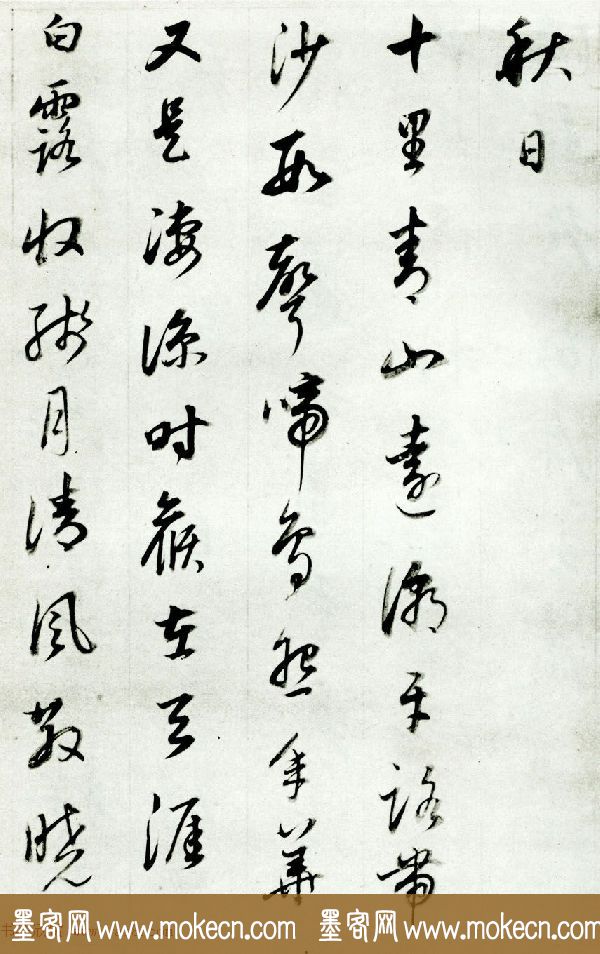 秋日
十里青山遠潮平路帶
沙數聲啼鳥怨年華
又是淒涼時候在天涯
白露收殘月清風散曉
墨客网 www.mokecn.com 墨客网 www.mokecn.com